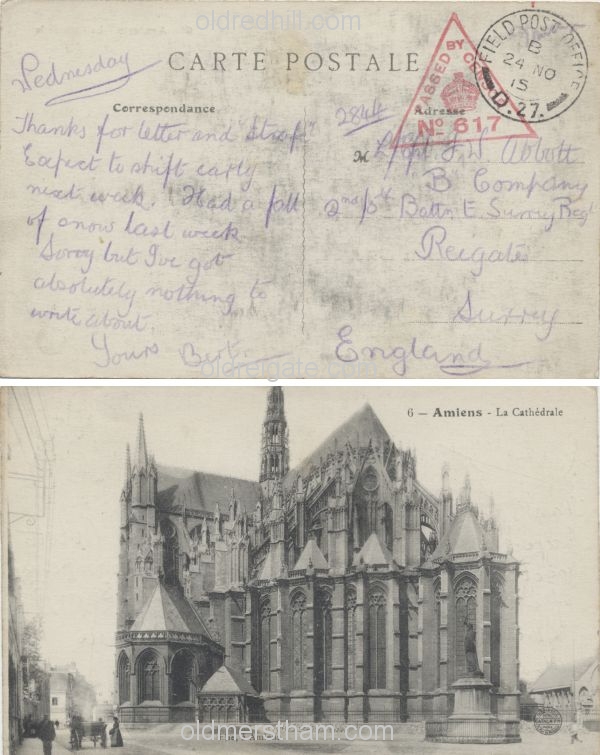 oldredhill.com
Wednesday
CARTE POSTALE
FIELD POST OFFICE
B
24 NO
15
D.27.
PASSED BY CENSOR
No 617
Correspondance
Adresse
2844
Thanks for letter and
Expect to shift early
next week. Had a fall
of snow last week
Sorry but I've got
absolutely nothing to
write about.
Yours Bert.
M L/Cpl F. W. Abbott
B Company
2nd/5th Battn E. Surrey Regt
Reigate
Surrey
England
oldreigate.com
6 — Amiens - La Cathédrale
oldmerstham.com